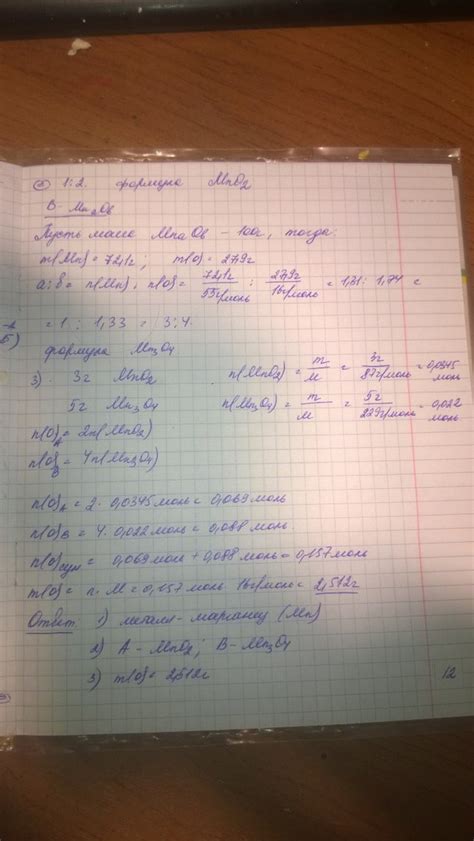 = 1:2. формула MnO2
B - MnaOb
Пусть масса MnaOb - 100г, тогда:
m{Mn} = 72,1г; m{O} = 27,9г
a:b = n{Mn} : n{O} = 72,1г / 55г/моль : 27,9г / 16г/моль = 1,31 : 1,74 =
= 1 : 1,33 = 3:4.
формула Mn3O4
3) 3г MnO2 n(MnO2) = m / M = 3г / 87г/моль = 0,0345 моль
5г Mn3O4 n(Mn3O4) = m / M = 5г / 229г/моль = 0,022 моль
n{O}A = 2n(MnO2)
n{O}B = 4n(Mn3O4)
n{O}A = 2 · 0,0345 моль = 0,069 моль
n{O}B = 4 · 0,022 моль = 0,088 моль.
n{O}сум = 0,069 моль + 0,088 моль = 0,157 моль
m{O} = n · M = 0,157 моль · 16г/моль = 2,512г
Ответ: 1) металл - марганец (Mn)
2) A - MnO2; B - Mn3O4
3) m{O} = 2,512г
12